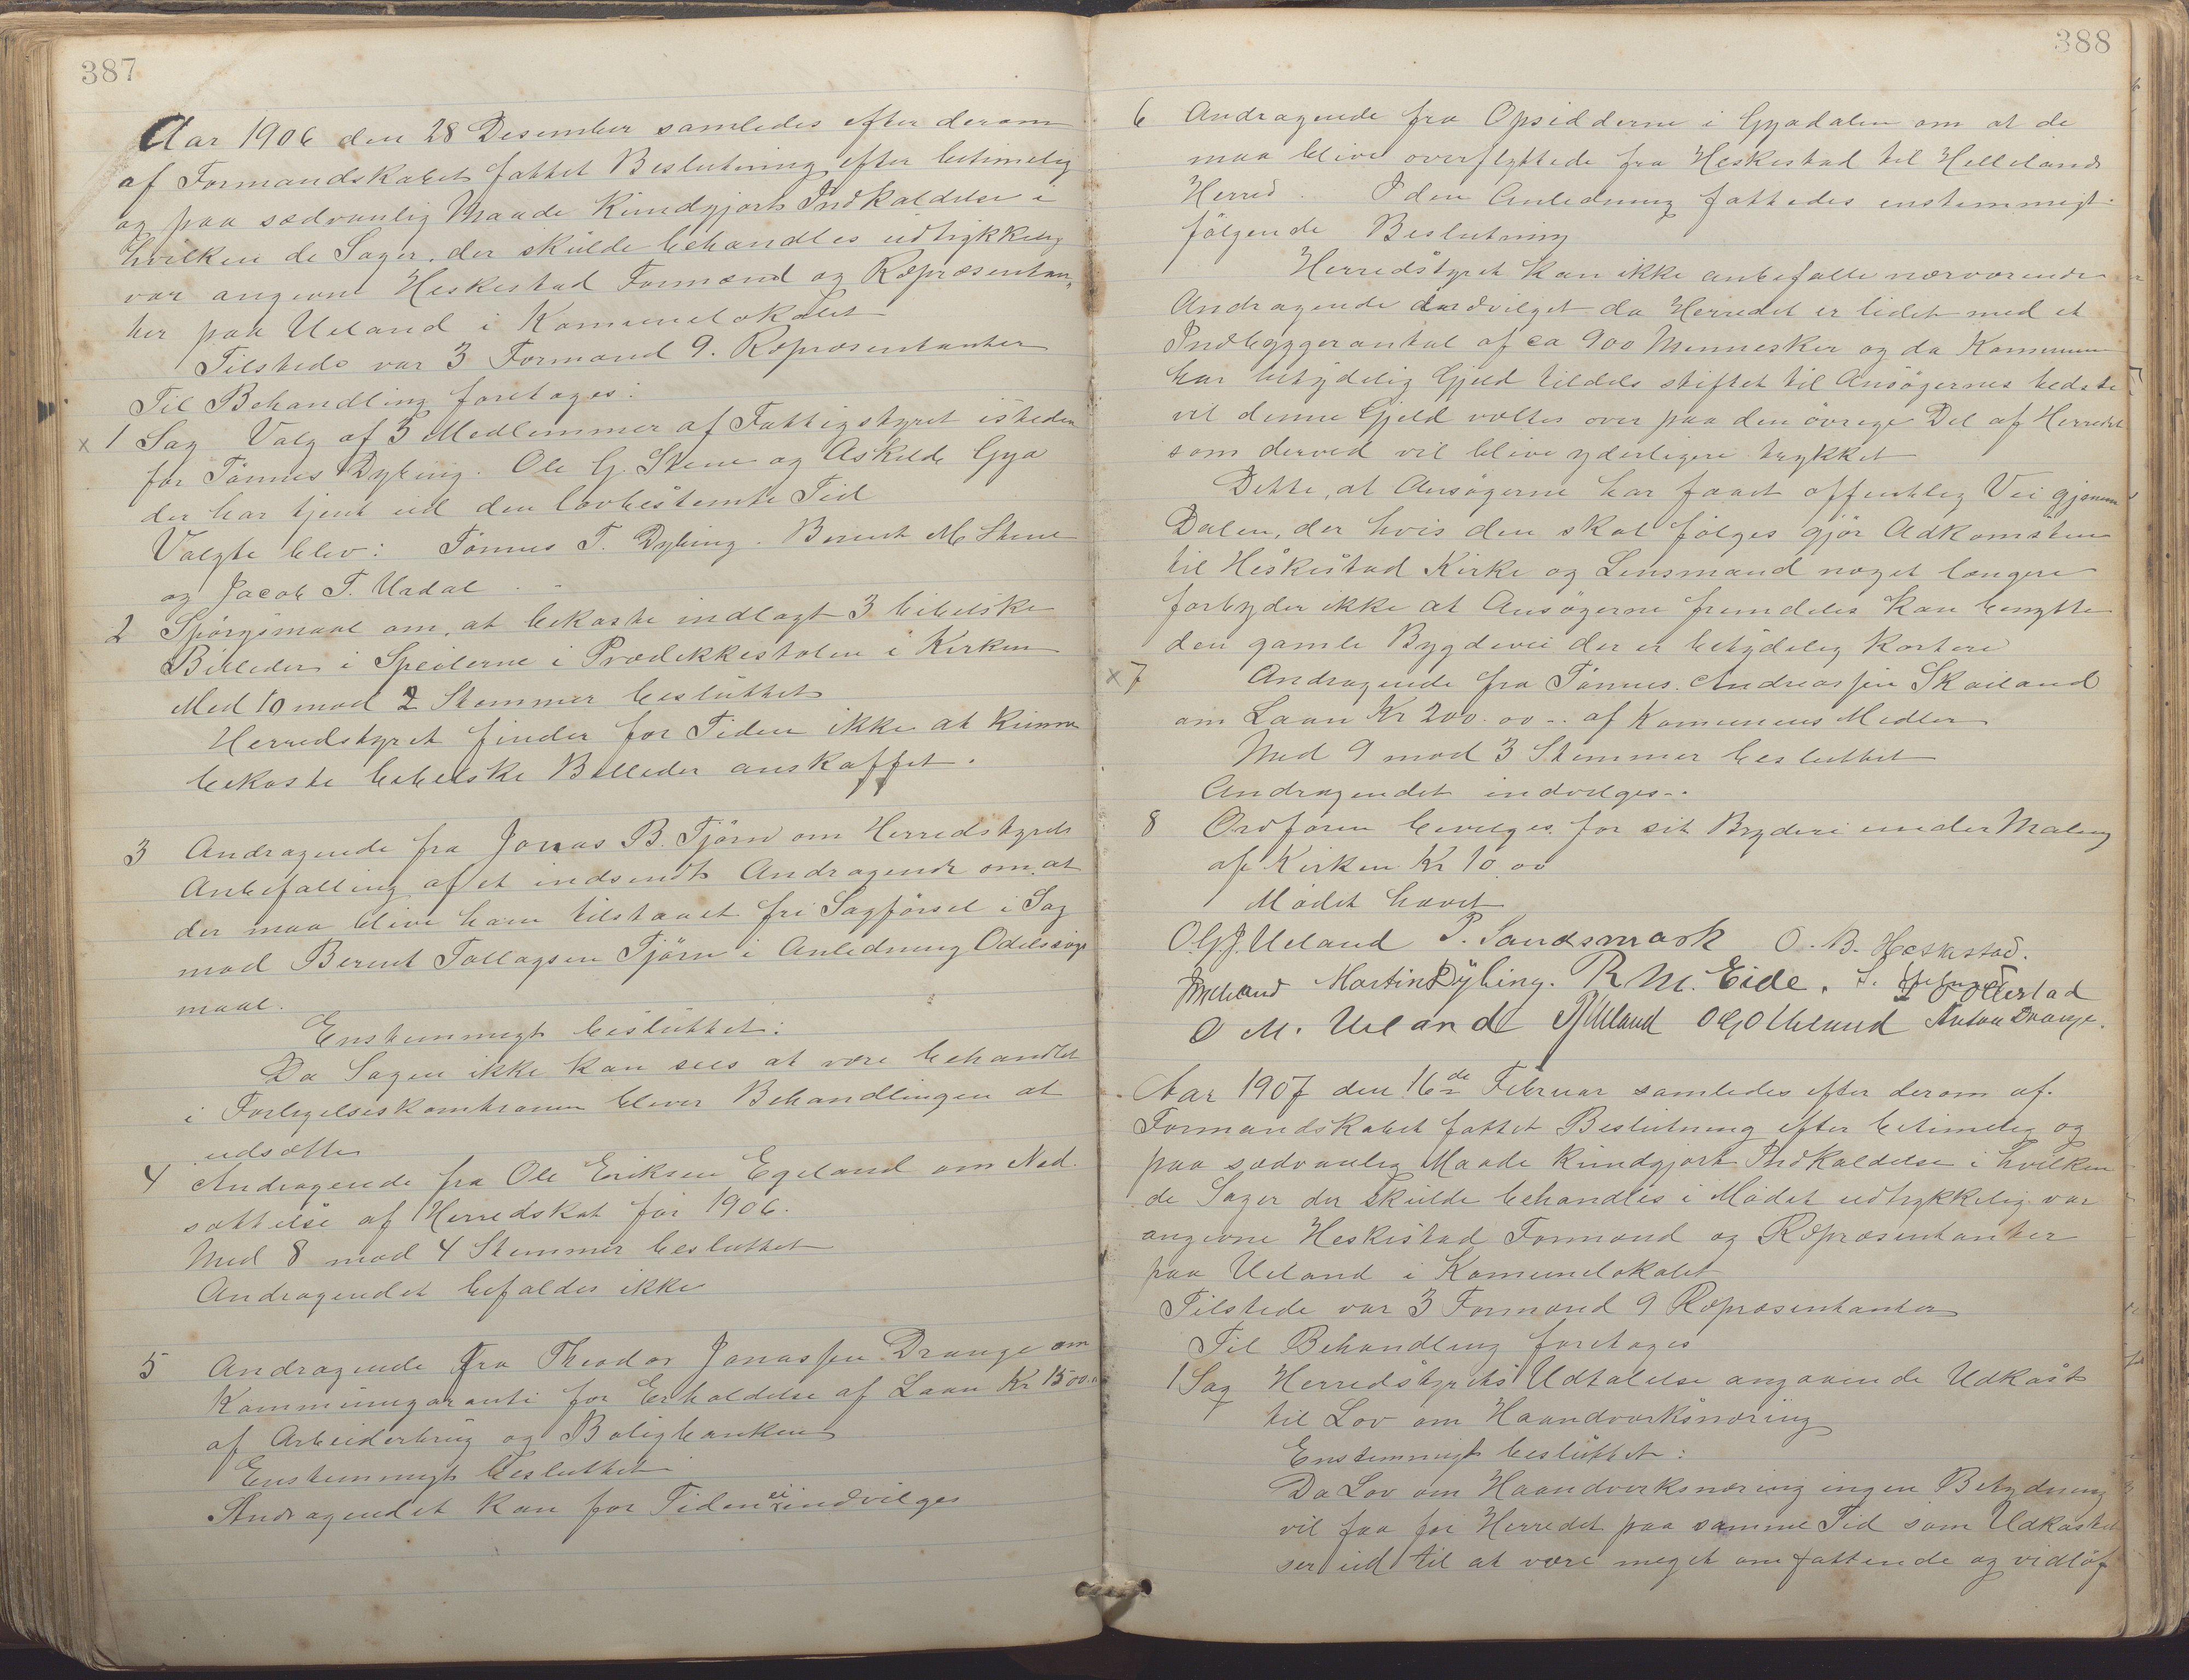 387
Aar 1906 den 28 Desember samledes efter derom
af Formandskabet fattet Beslutning efter betimelig
og paa sædvanlig Maade Kundgjort Indkaldelse i
hvilken de Sager, der skulde behandles udtrykkelig
var angivne Heskestad Formænd og Repræsentan„
ter paa Ueland i Komunelokalet
Tilstede var 3 Formænd 9. Repræsentanter
Til Behandling foretages:
x 1 Sag Valg af 3 Medlemmer af Fattigstyret isteden
for Tønnes Dybing. Ole G. Stene og Askild Gya
der har tjent ud den lovbestemte Tid
Valgte blev: Tønnes T. Dybing. Berent M Stene
og Jacob T. Urdal
2 Spørgsmaal om, at bekoste indlagt 3 bibelske
Billeder i Speilerne i Prædikkestolen i Kirken
Med 10 mod 2 Stemmer besluttet
Herredstyret finder for Tiden ikke at kunne
bekoste bibelske Billeder anskaffet.
3 Andragende fra Jonas B. Tjørn om Herredstyrets
Anbefalling af et indsendt Andragende om, at
der maa blive ham tilstaaet fri Sagførsel i Sag
mod Berent Tollagsen Tjørn i Anledning Odelssøgs
maal.
Enstemmigt besluttet:
Da Sagen ikke kan sees at være behandlet
i Forligelseskomisionen bliver Behandlingen at
udsætte
4 Andragende fra Ole Eriksen Egeland om Ned.
sættelse af Herredskat for 1906.
Med 8 mod 4 Stemmer besluttet
Andragendet befaldes ikke
5 Andragende fra Theodor Jonassen Drange om
Kommunegaranti for Erholdelse af Laan Kr 1500..
af Arbeiderbrug og Boligbanken
Enstemmigt besluttet
Andragendet kan for Tiden ei indvilges
388
6 Andragende fra Opsidderne i Gyadalen om at de
maa blive overflyttede fra Heskestad til Hellelands
Herred. I den Anledning fattedes enstemmigt.
følgende Beslutning
Herredstyret kan ikke anbefalle nærværende
Andragende indvilget da Herredet er lidet med et
Indbyggerantal af ca 900 Mennesker og da Kommunen
har betydelig Gjeld tildels stiftet til Ansøgernes bedste
vil denne Gjeld væltes over paa den øvrige Del af Herredet
som derved vil blive yderligere trykket
Dette, at Ansøgerne har faaet offentlig Vei gjennem
Dalen, der hvis den skal følges gjør Adkomsten
til Heskestad Kirke og Lensmand noget længere
forbyder ikke at Ansøgerne fremdeles kan benytte
den gamle Bygdevei der er betydelig kortere
x 7 Andragende fra Tønnes. Andreassen Skailand
om Laan Kr 200.00.. af Komunens Medler
Med 9 mod 3 Stemmer besluttet
Andragendet indvilges..
8 Ordføren bevilges for sit Bryderi under Maling
af Kirken Kr 10.00
Mødet hævet
O.G.J. Ueland P. Sandsmark O. B. Heskestad.
Martin Dybing. R M. Eide. S.
O M. Ueland Ueland O G O Ueland Anton Drange.
Aar 1907 den 16de Februar samledes efter derom af.
Formandskabet fattet Beslutning efter betimelig og
paa sædvanlig Maade kundgjort Indkaldelse i hvilken
de Sager der skulde behandles i Mødet udtrykkelig var
angivne Heskestad Formænd og Repræsentanter
paa Ueland i Komunelokalet
Tilstede var 3 Formænd 9 Repræsentanter
Til Behandling foretages
1 Sag Herredstyrets Udtalelse angaaende Udkast
til Lov om Haandværksnæring
Enstemmigt besluttet:
Da Lov om Haandverksnæring ingen Betydning
vil faa for Herredet paa samme Tid som Udkastet
ser ud til at være meget omfattende og vidløf